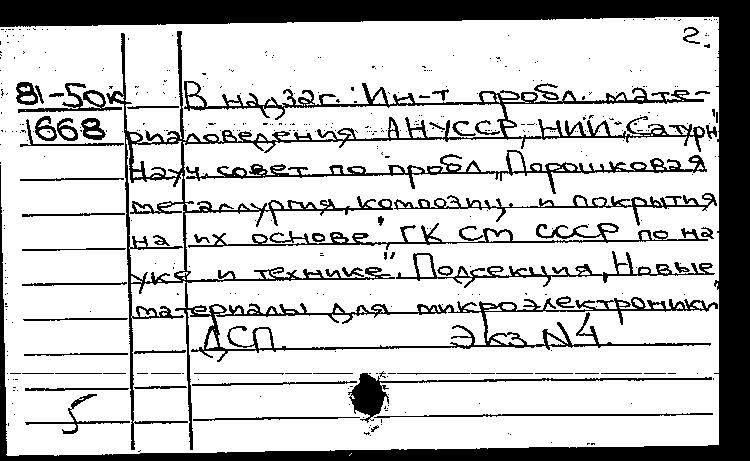 2.
81-50к В надзаг.: Ин-т пробл. мате-
1668 риаловедения АНУССР, НИИ „Сатурн"
Науч. совет по пробл. „Порошковая
металлургия, композиц. и покрытия
на их основе", ГК СМ СССР по на-
уке и технике". Подсекция „Новые
материалы для микроэлектроники"
ДСП. Экз. N4.
5